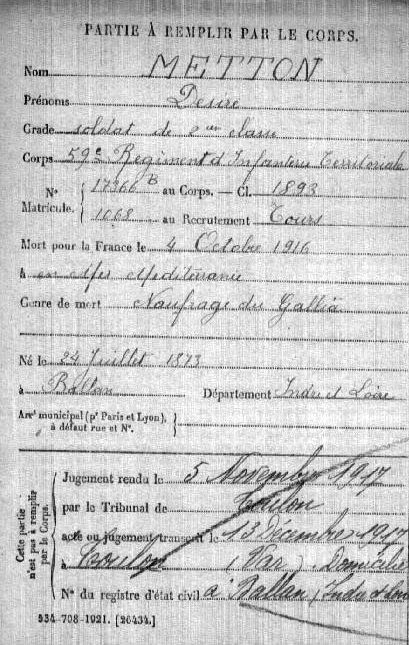 PARTIE À REMPLIR PAR LE CORPS.
Nom METTON
Prénoms Désiré
Grade soldat de 2ème classe
Corps 59e Régiment d'Infanterie Territoriale
N° Matricule. { 17366 B au Corps. — Cl. 1893
1068 au Recrutement Tours
Mort pour la France le 4 Octobre 1916
à en Mer Méditerranée
Genre de mort Naufrage du Gallia
Né le 24 Juillet 1873
à Ballan Département Indre et Loire
Arrt municipal (pr Paris et Lyon),
à défaut rue et N°.
Cette partie n'est pas à remplir par le Corps.
Jugement rendu le 5 Novembre 1917
par le Tribunal de Toulon
acte ou jugement transcrit le 13 Décembre 1917
à Toulon (Var). Domicilié
N° du registre d'état civil à Ballan (Indre et Loire
534-708-1921. [26434.]